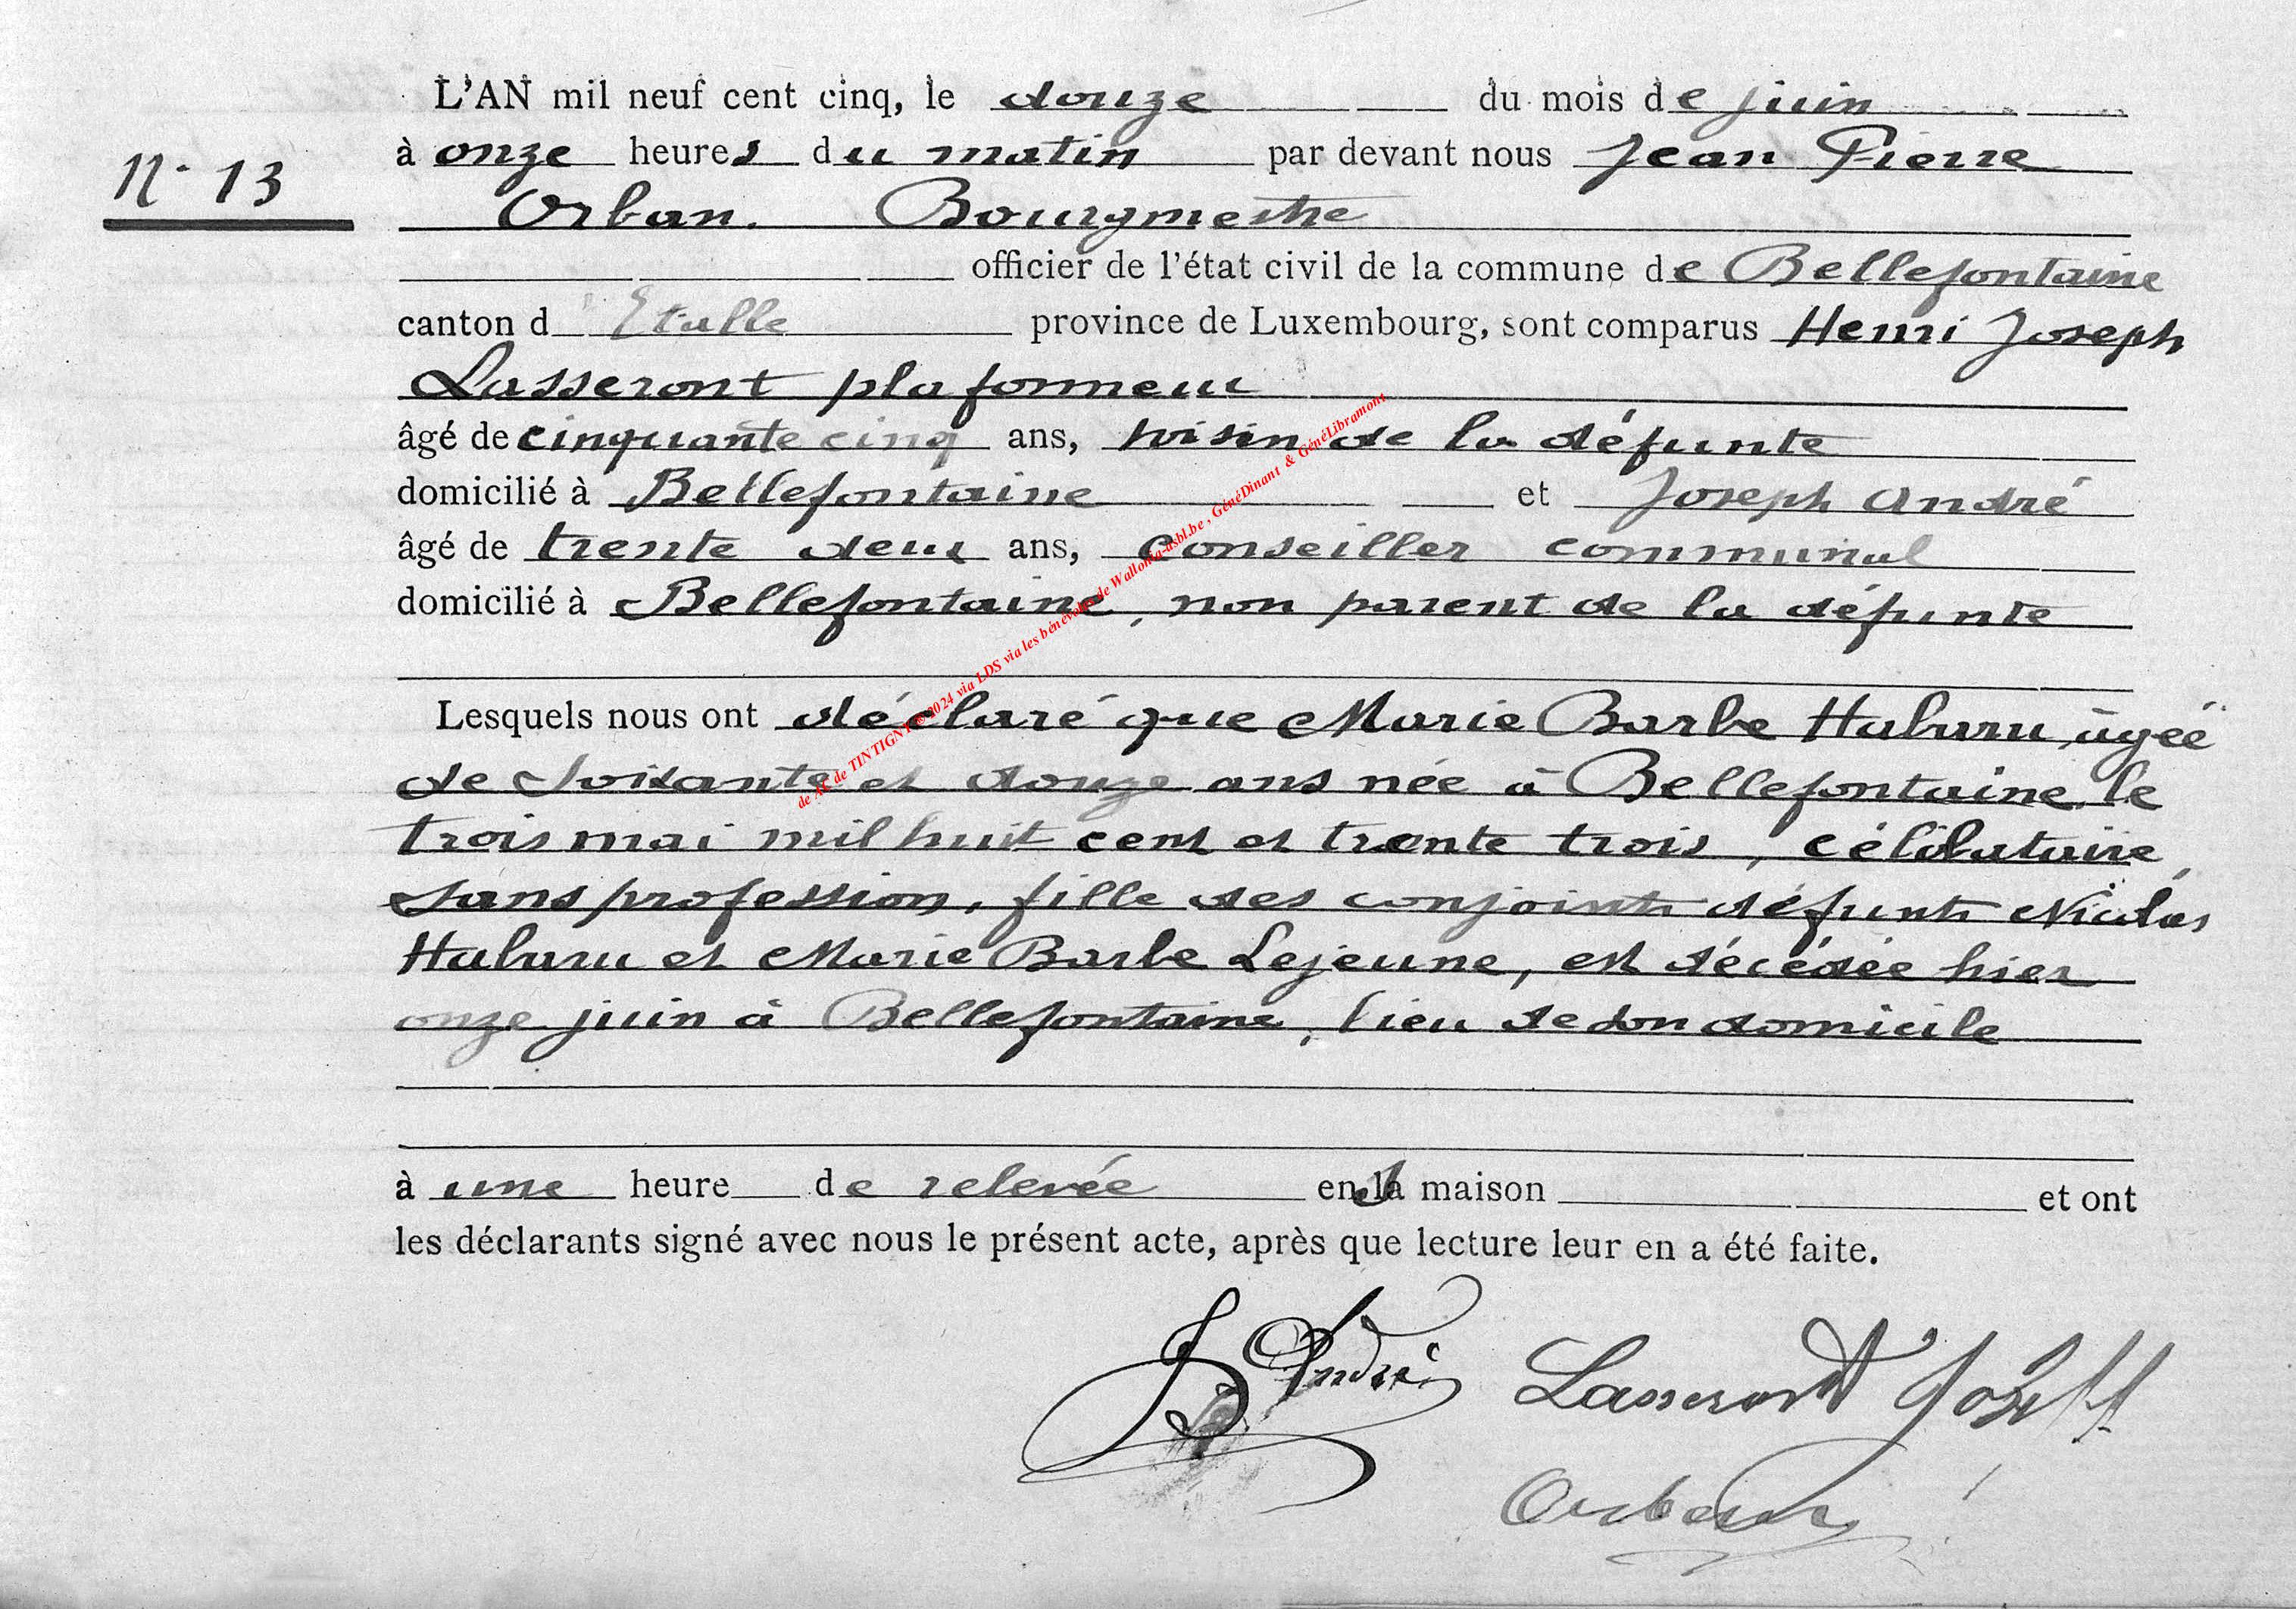 L'AN mil neuf cent cinq, le douze du mois de juin
N° 13
à onze heures du matin par devant nous Jean Pierre
Orban. Bourgmestre
officier de l'état civil de la commune de Bellefontaine
canton d'Etalle province de Luxembourg, sont comparus Henri Joseph
Lasseront plafonneur
âgé de cinquante cinq ans, voisin de la défunte
domicilié à Bellefontaine et Joseph André
âgé de trente deux ans, conseiller communal
domicilié à Bellefontaine, non parent de la défunte
Lesquels nous ont déclaré que Marie Barbe Haburu, âgée
de soixante et douze ans née à Bellefontaine le
trois mai mil huit cent et trente trois, célibataire,
sans profession, fille des conjoints défunts Nicolas
Haburu et Marie Barbe Lejeune, est décédée hier
onze juin à Bellefontaine, lieu de son domicile
à une heure de relevée en sa maison et ont
les déclarants signé avec nous le présent acte, après que lecture leur en a été faite.
J André Lasseront Joseph
Orban
de TINTIGNY © 2024 via LDS via les bénévoles de Wallonia-asbl.be, GénéDinant & GénéLibramont